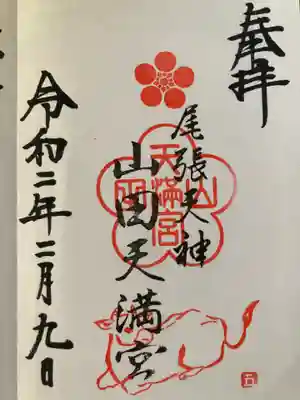 奉拝
尾張天神
山田天満宮
令和二年二月九日
天満宮
山田